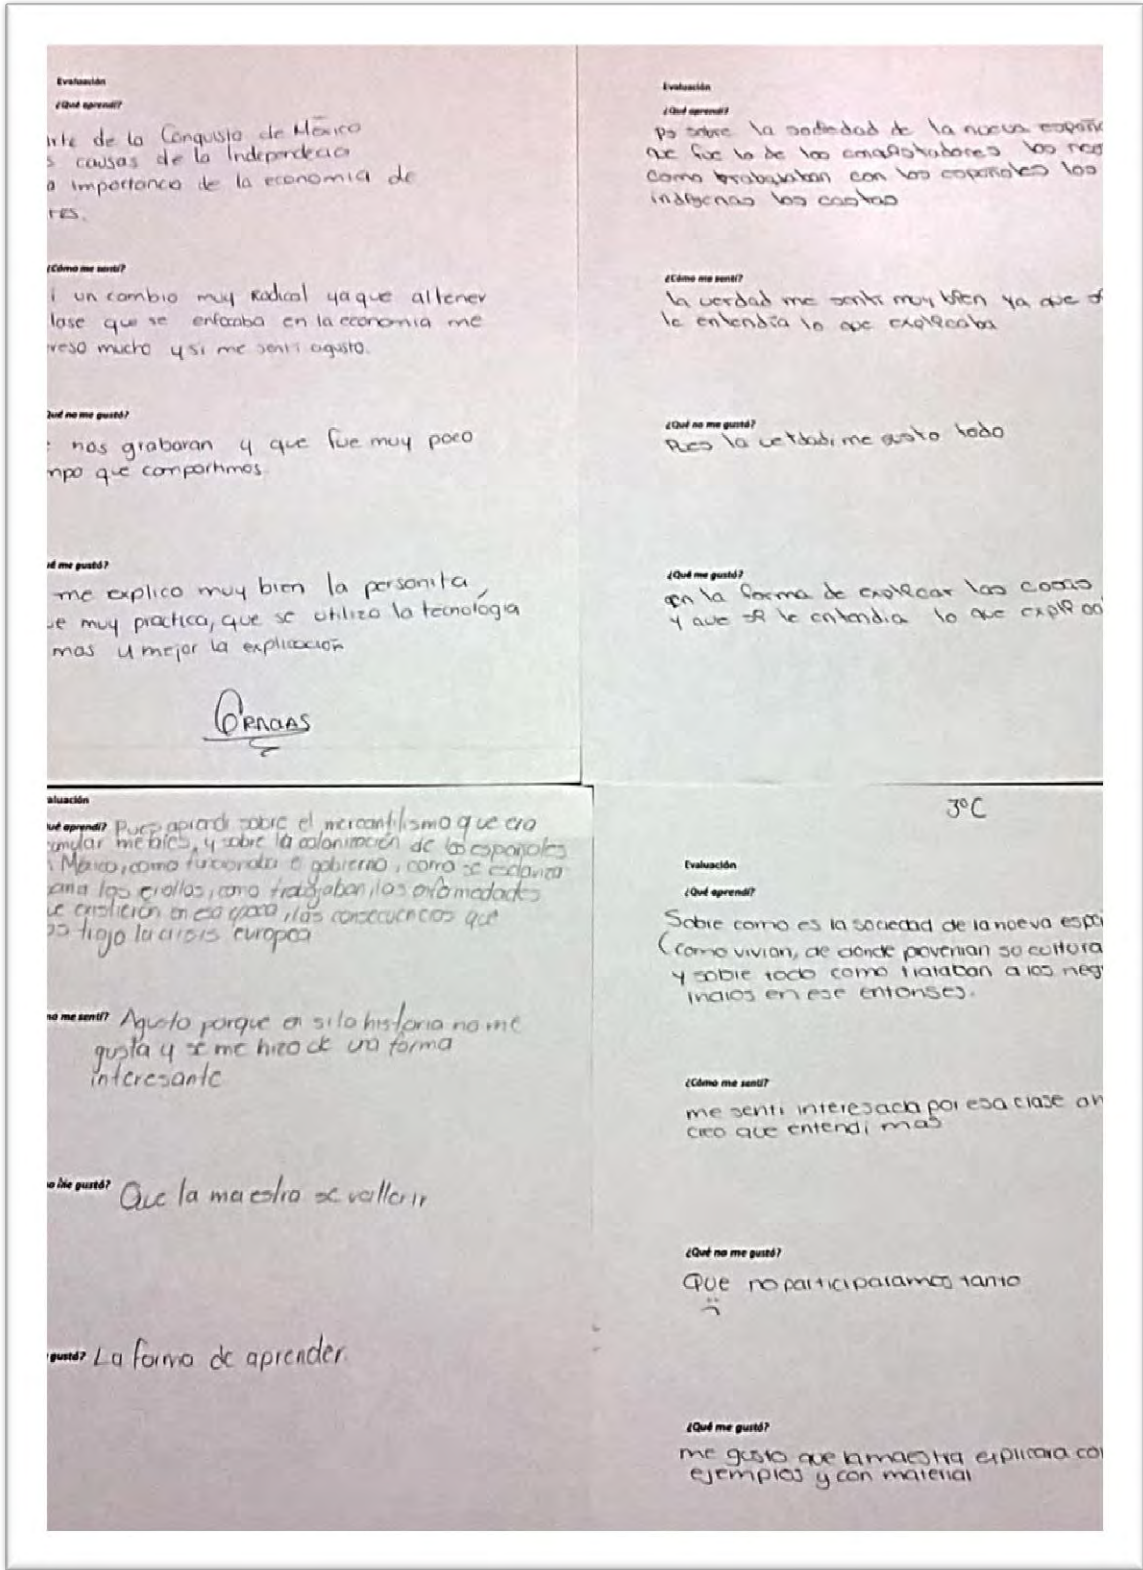 Evaluación
¿Qué aprendí?
arte de la Conquista de México
s causas de la Independecia
a importanca de la economia de
res.
¿Cómo me sentí?
i un cambio muy Radical ya que al tener
lase que se enfocaba en la economia me
reso mucho y si me senti agusto.
Qué no me gustó?
nos grabaran y que fue muy poco
mpo que compartimos.
ué me gustó?
me explico muy bien la personita,
ue muy practica, que se utilizo la tecnológia
mas y mejor la explicación
GRACIAS
Evaluación
¿Qué aprendí?
Ps sobre la sociedad de la nueva españ
que fue lo de los conquistadores los neg
como trabajaban con los españoles los
indígenas los castas
¿Cómo me sentí?
la verdad me senti muy bien ya que sí
le entendía lo que explicaba
¿Qué no me gustó?
Pues la verdad me gusto todo
¿Qué me gustó?
en la forma de explicar las cosas
y que sí le entendia lo que explica
aluación
ué aprendí? Pues aprendi sobre el mercantilismo que era
mular metales, y sobre la colonización de los españoles
México, como funcionaba el gobierno, como se
los criollos, como trabajaban, las enfermedades
ue en esa epoca, las consecuencias que
trajo la crisis europea
mo me sentí? Agusto porque en si la historia no me
gusta y se me hizo de una forma
interesante
no me gustó? Que la maestra se va
gustó? La forma de aprender.
3°C
Evaluación
¿Qué aprendí?
Sobre como es la sociedad de la nueva espa
(como vivian, de donde provenian su cultura
y sobre todo como trataban a los neg
indios en ese entonses.
¿Cómo me sentí?
me senti interesada por esa clase ah
creo que entendi mas
¿Qué no me gustó?
Que no participaramos tanto
¿Qué me gustó?
me gusto que la maestra explicara co
ejemplos y con material